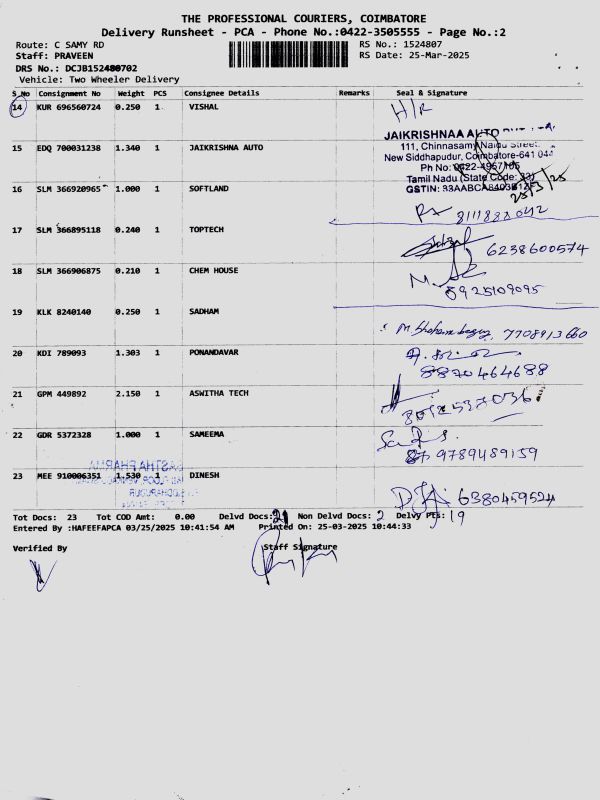 THE PROFESSIONAL COURIERS, COIMBATORE
Delivery Runsheet - PCA - Phone No.:0422-3505555 - Page No.:2
Route: C SAMY RD RS No.: 1524807
Staff: PRAVEEN RS Date: 25-Mar-2025
DRS No.:
Vehicle: Two Wheeler Delivery
S_No Consignment No Weight PCS Consignee Details Remarks Seal & Signature
14 KUR 696560724 0.250 1 VISHAL H/R
JAIKRISHNAA AUTO
15 EDQ 700031238 1.340 1 JAIKRISHNA AUTO 111, Chinnasamy Naidu Street,
New Siddhapudur, Coimbatore-641 044
Ph No: 0422-4967105
Tamil Nadu (State Code: 33)
16 SLM 366920965 1.000 1 SOFTLAND GSTIN:
25/3/25
8111882042
17 SLM 366895118 0.240 1 TOPTECH
6238600574
18 SLM 366906875 0.210 1 CHEM HOUSE
8925109095
19 KLK 8240140 0.250 1 SADHAM
7708913660
20 KDI 789093 1.303 1 PONANDAVAR
8870464688
21 GPM 449892 2.150 1 ASWITHA TECH
22 GDR 5372328 1.000 1 SAMEEMA
9789489159
23 MEE 910006351 1.530 1 DINESH
6380459524
Tot Docs: 23 Tot COD Amt: 0.00 Delvd Docs: 21 Non Delvd Docs: 2 Delvy Pts: 19
Entered By :HAFEEFAPCA 03/25/2025 10:41:54 AM Printed On: 25-03-2025 10:44:33
Verified By Staff Signature